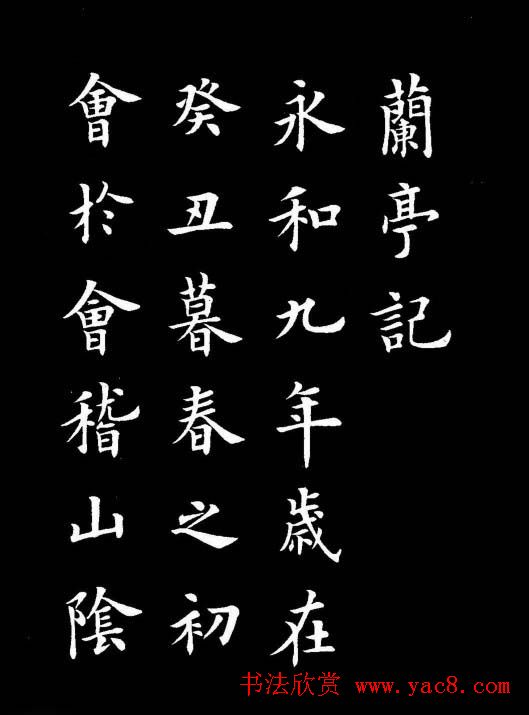 蘭亭記
永和九年歲在
癸丑暮春之初
會於會稽山陰
书法欣赏 www.yac8.com